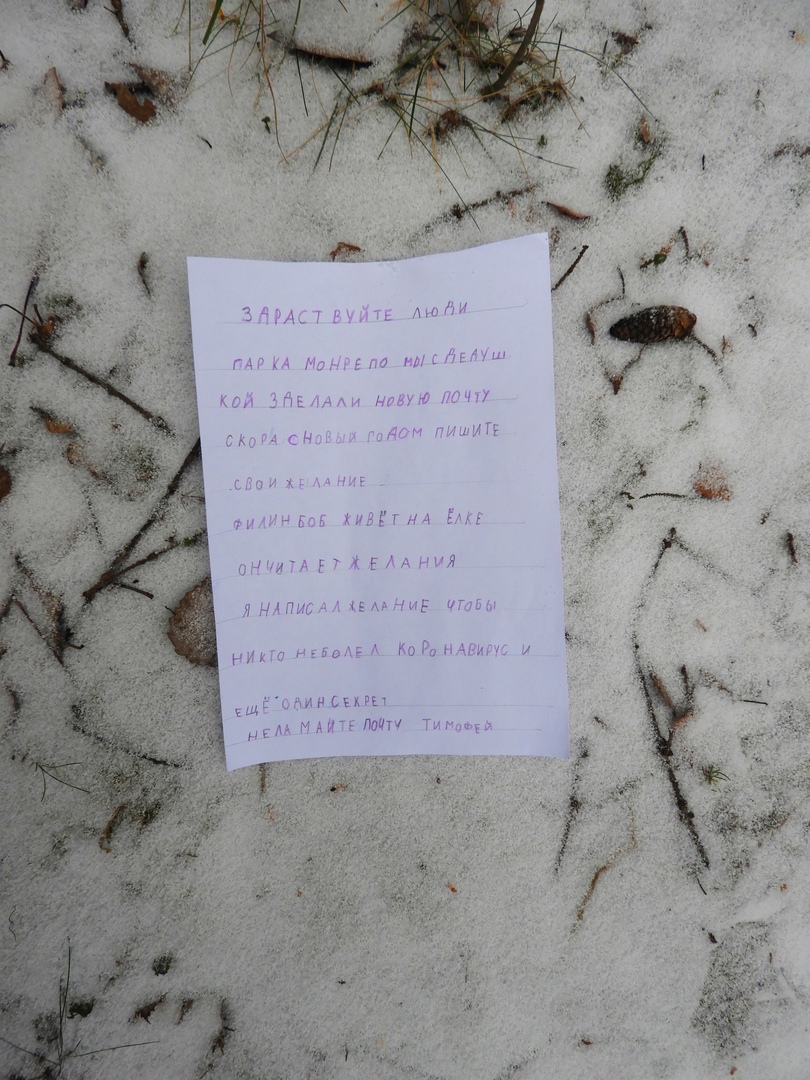 ЗДРАСТВУЙТЕ ЛЮДИ
ПАРКА МОНРЕПО МЫ С ДЕДУШ
КОЙ ЗДЕЛАЛИ НОВУЮ ПОЧТУ
СКОРА С НОВЫЙ ГОДОМ ПИШИТЕ
СВОИ ЖЕЛАНИЕ
ФИЛИН БОБ ЖИВЁТ НА ЁЛКЕ
ОН ЧИТАЕТ ЖЕЛАНИЯ
Я НАПИСАЛ ЖЕЛАНИЕ ЧТОБЫ
НИКТО НЕ БОЛЕЛ КОРОНАВИРУС И
ЕЩЁ ОДИН СЕКРЕТ
НЕ ЛАМАЙТЕ ПОЧТУ ТИМОФЕЙ